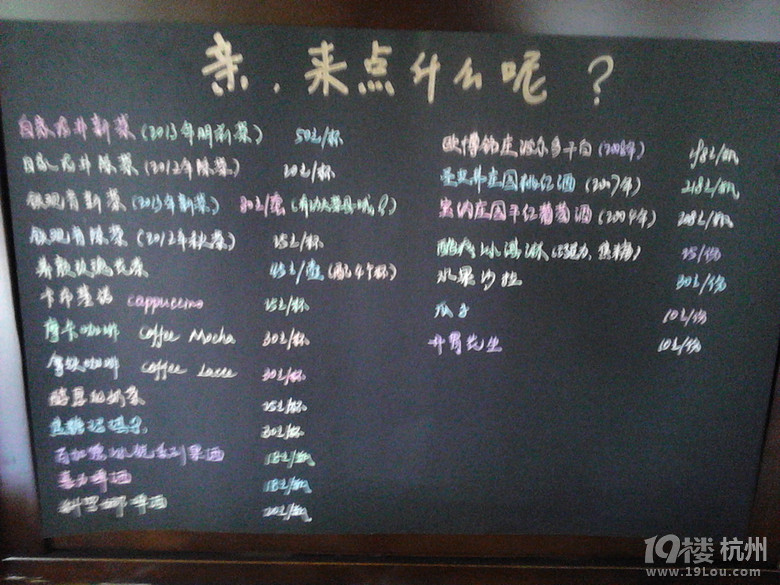 亲，来点什么呢？
自家龙井新茶（2013年明前茶） 50元/杯
自家龙井陈茶（2012年陈茶） 20元/杯
铁观音新茶（2013年新茶） 80元/壶
铁观音陈茶（2012年秋茶） 25元/杯
玫瑰花茶 45元/壶（配4个杯）
卡布基诺 cappuccino 25元/杯
摩卡咖啡 Coffee Mocha 30元/杯
拿铁咖啡 Coffee Latte 30元/杯
奶茶 25元/杯
焦糖玛琪朵 30元/杯
百加得冰锐系列果酒 18元/瓶
喜力啤酒 18元/瓶
科罗娜啤酒 20元/瓶
干白（2008年） 198元/瓶
庄园桃红酒（2007年） 218元/瓶
庄园干红葡萄酒（2004年） 208元/瓶
冰淇淋（巧克力、焦糖） 25/份
水果沙拉 30元/份
瓜子 10元/份
开胃花生 10元/份
19楼 杭州
www.19Lou.com